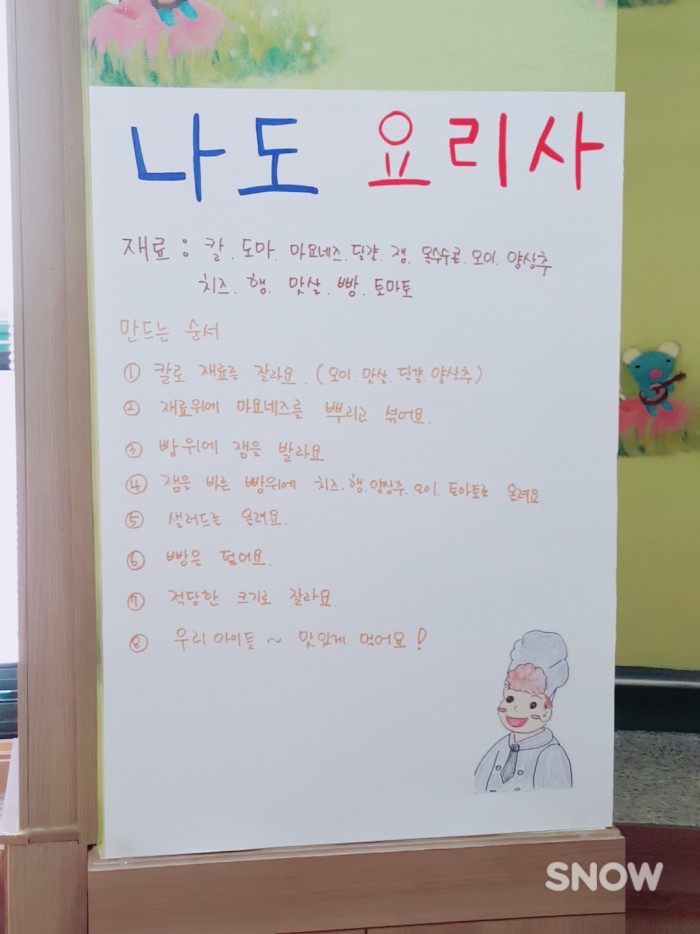 나도 요리사
재료 : 칼. 도마. 마요네즈. 달걀. 잼. 옥수수콘. 오이. 양상추
치즈. 햄. 맛살. 빵. 토마토
만드는 순서
① 칼로 재료를 잘라요. (오이. 맛살. 달걀. 양상추)
② 재료위에 마요네즈를 뿌리고 섞어요.
③ 빵위에 잼을 발라요
④ 잼을 바른 빵위에 치즈. 햄. 양상추. 오이. 토마토를 올려요.
⑤ 샐러드를 올려요.
⑥ 빵을 덮어요.
⑦ 적당한 크기로 잘라요.
⑧ 우리아이들 ~ 맛있게 먹어요!
SNOW